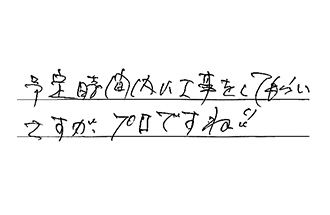 予定時間内に工事をしてもらい
さすが、プロですね!!